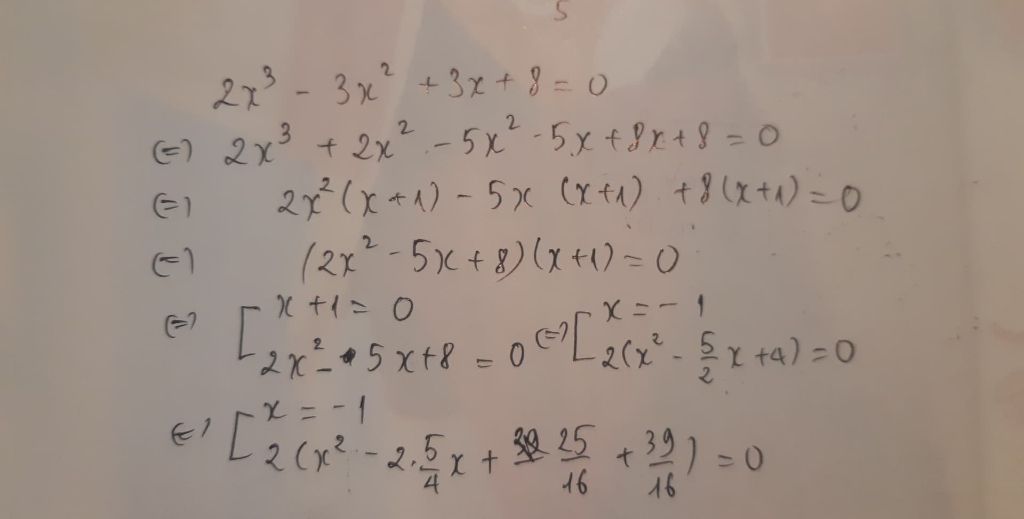 5
2x³ - 3x² + 3x + 8 = 0
(=) 2x³ + 2x² - 5x² - 5x + 8x + 8 = 0
(=) 2x²(x+1) - 5x (x+1) + 8(x+1) = 0
(=) (2x² - 5x + 8)(x+1) = 0
(=) [ x + 1 = 0 ; 2x² - 5x + 8 = 0 (=) [ x = - 1 ; 2(x² - 5/2 x + 4) = 0
(=) [ x = - 1 ; 2(x² - 2. 5/4 x + 25/16 + 39/16) = 0